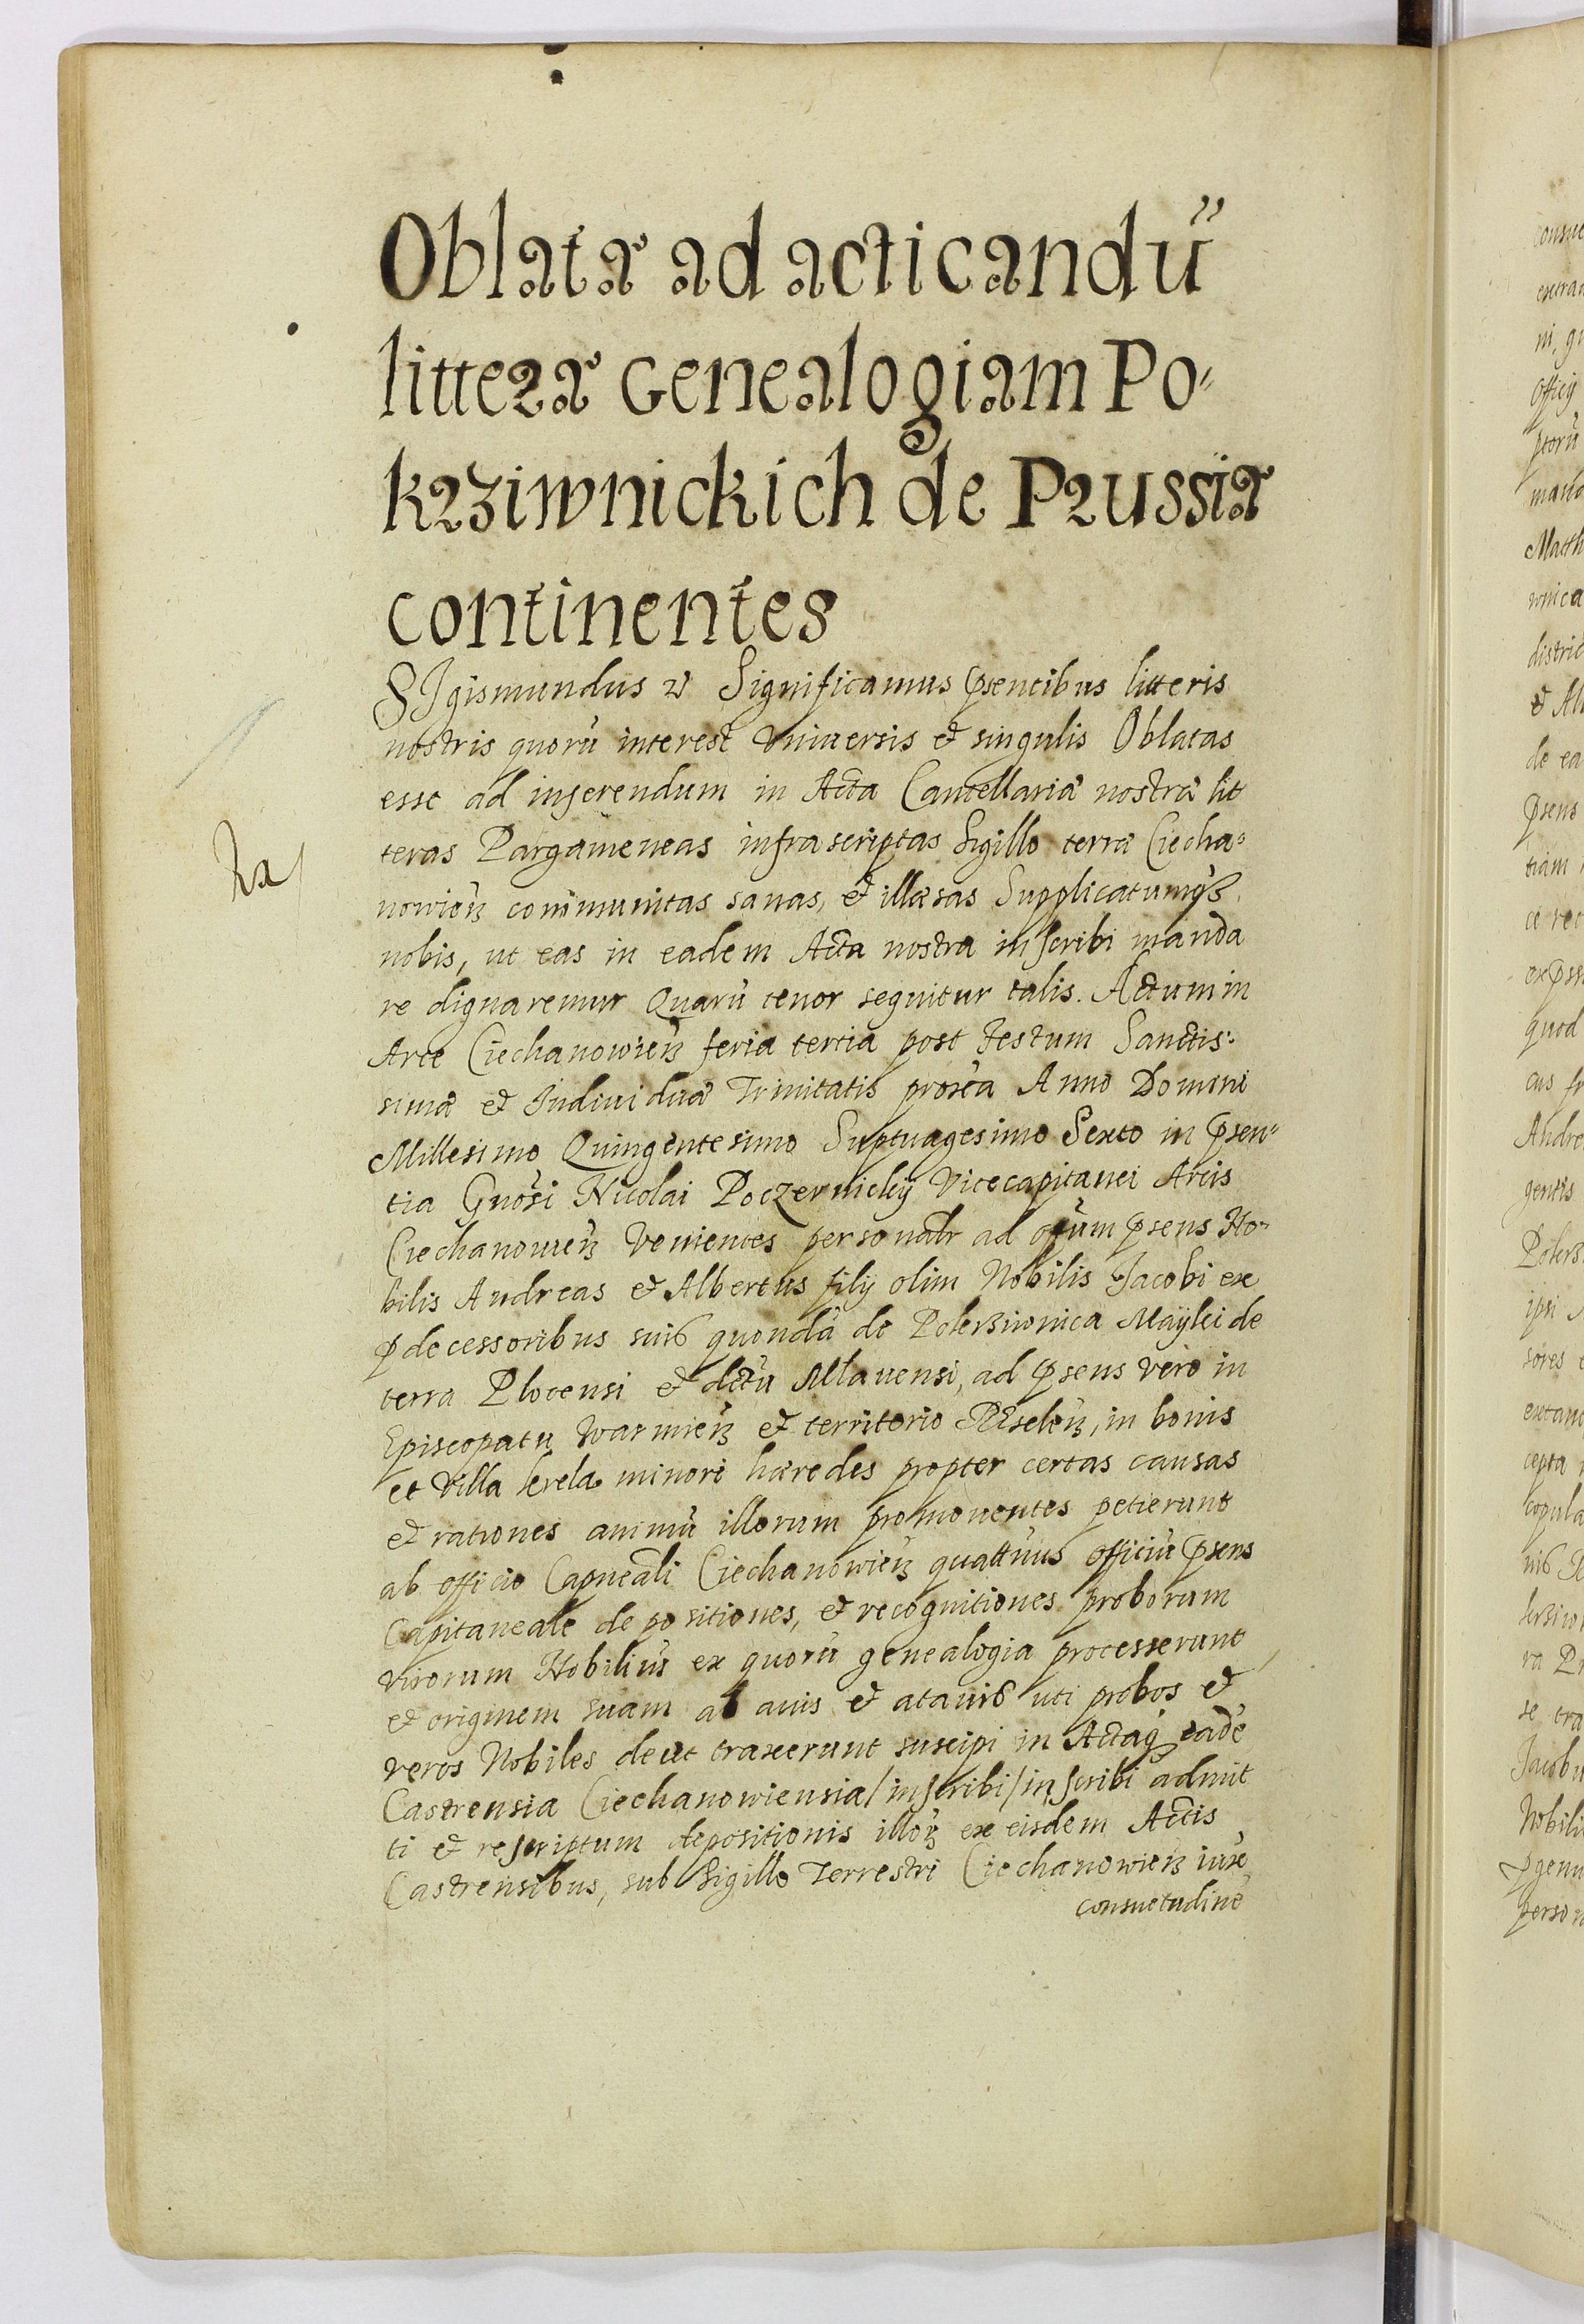 Oblatæ ad acticandū
litteræ Genealogiam Po-
krziwnickich de Prussia
continentes
SIgismundus Significamus pſentibus litteris
nostris quorū interest vniuersis et singulis Oblatas
esse ad inserendum in Acta Cancellariæ nostræ lit
teras Pargameneas infrascriptas Sigillo terræ Ciecha-
nowien communitas sanas, et illæsas Supplicatumq́
nobis, ut eas in eadem Acta nostra inscribi manda
re dignaremur Quarū tenor sequitur talis. Actum in
Arce Ciechanowien feria tertia post Festum Sanctis-
simæ et Indiuiduæ Trinitatis proxa Anno Domini
Millesimo Quingentesimo Suptuagesimo Sexto in pſen-
tia Gnosi Nicolai Poczernickij Vicecapitanei Arcis
Ciechanouien Venientes personalr ad offum pſens No-
bilis Andreas et Albertus filij olim Nobilis Jacobi ex
pdecessoribus suis quondā de Pokrziwnica Mayski de
terra Plocensi et dictu Mlauensi, ad pſens vero in
Episcopatu Warmien et territorio Reselen, in bonis
et Villa minori hæredes propter certas causas
et rationes animū illorum promouentes petierunt
ab officio Capneali Ciechanowien quattnus officiū pſens
Capitaneale depositiones, et recognitiones proborum
virorum Nobiliū ex quorū genealogia processerunt
et originem suam ab auis et atauis uti probos et
veros Nobiles deut traxerunt suscipi in Actaq́ eadē
Castrensia Ciechanowiensia/inscribi/inscribi admit
ti et rescriptum depositionis illor ex eisdem Actis
Castrensibus, sub Sigillo Terrestri Ciechanowien iuxᵉ
consuetudinē